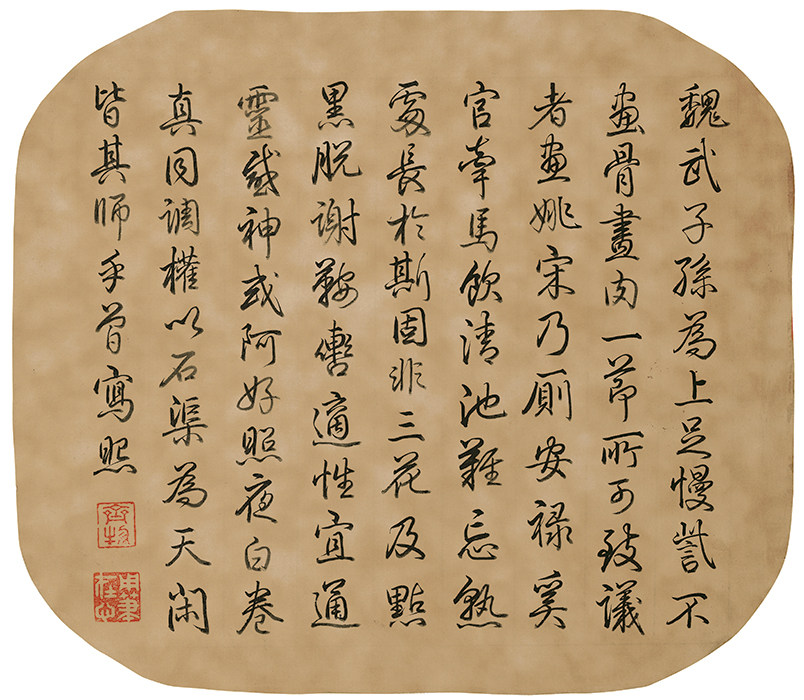 魏武子孫為上足慢訾不
畫骨畫肉一節所可致議
者畫姚宋乃廁安祿奚
官牽馬飲清池難忘熟
處長於斯固非三花及點
黑脫謝鞍轡適性宜通
靈感神或阿好照夜白卷
真同調權以石渠為天閑
皆其師乎曾寫照
齊物
用筆在心